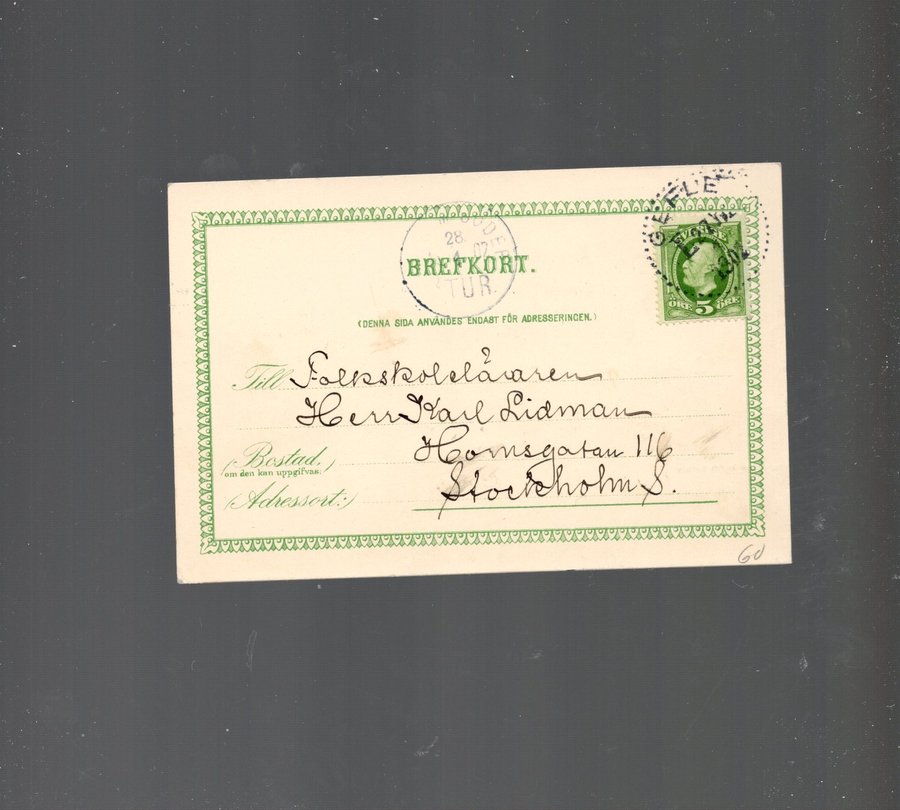 GEFLE
1902
SVERIGE
ÖRE 5 ÖRE
28
4 02
TUR.
BREFKORT.
(DENNA SIDA ANVÄNDES ENDAST FÖR ADRESSERINGEN.)
Till Folkskoleläraren
Herr Karl Lidman
(Bostad,) Hornsgatan 116
om den kan uppgifvas.
(Adressort:) Stockholm S.
60